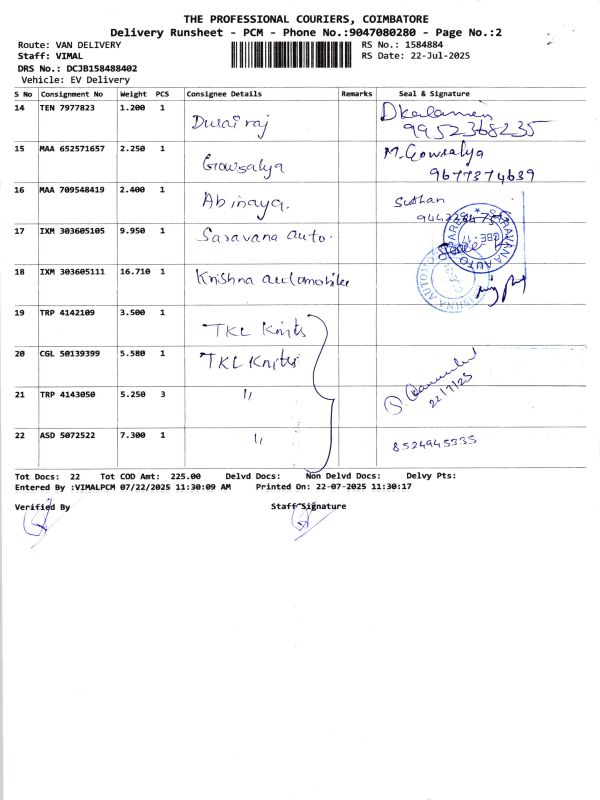 THE PROFESSIONAL COURIERS, COIMBATORE
Delivery Runsheet - PCM - Phone No.:9047080280 - Page No.:2
Route: VAN DELIVERY RS No.: 1584884
Staff: VIMAL RS Date: 22-Jul-2025
DRS No.: DCJB158488402
Vehicle: EV Delivery
S No Consignment No Weight PCS Consignee Details Remarks Seal & Signature
14 TEN 7977823 1.200 1 Durai raj
9952368235
15 MAA 652571657 2.250 1 Gowsalya M. Gowsalya
9677374639
16 MAA 709548419 2.400 1 Abinaya.
17 IXM 303605105 9.950 1 Saravana auto. SARAVANA AUTO
18 IXM 303605111 16.710 1 Krishna automobiles
19 TRP 4142109 3.500 1 TKL Knits
20 CGL 50139399 5.580 1 TKL Knits
21 TRP 4143050 5.250 3 11 22/7/25
22 ASD 5072522 7.300 1 11 8524945335
Tot Docs: 22 Tot COD Amt: 225.00 Delvd Docs: Non Delvd Docs: Delvy Pts:
Entered By :VIMALPCM 07/22/2025 11:30:09 AM Printed On: 22-07-2025 11:30:17
Verified By Staff Signature